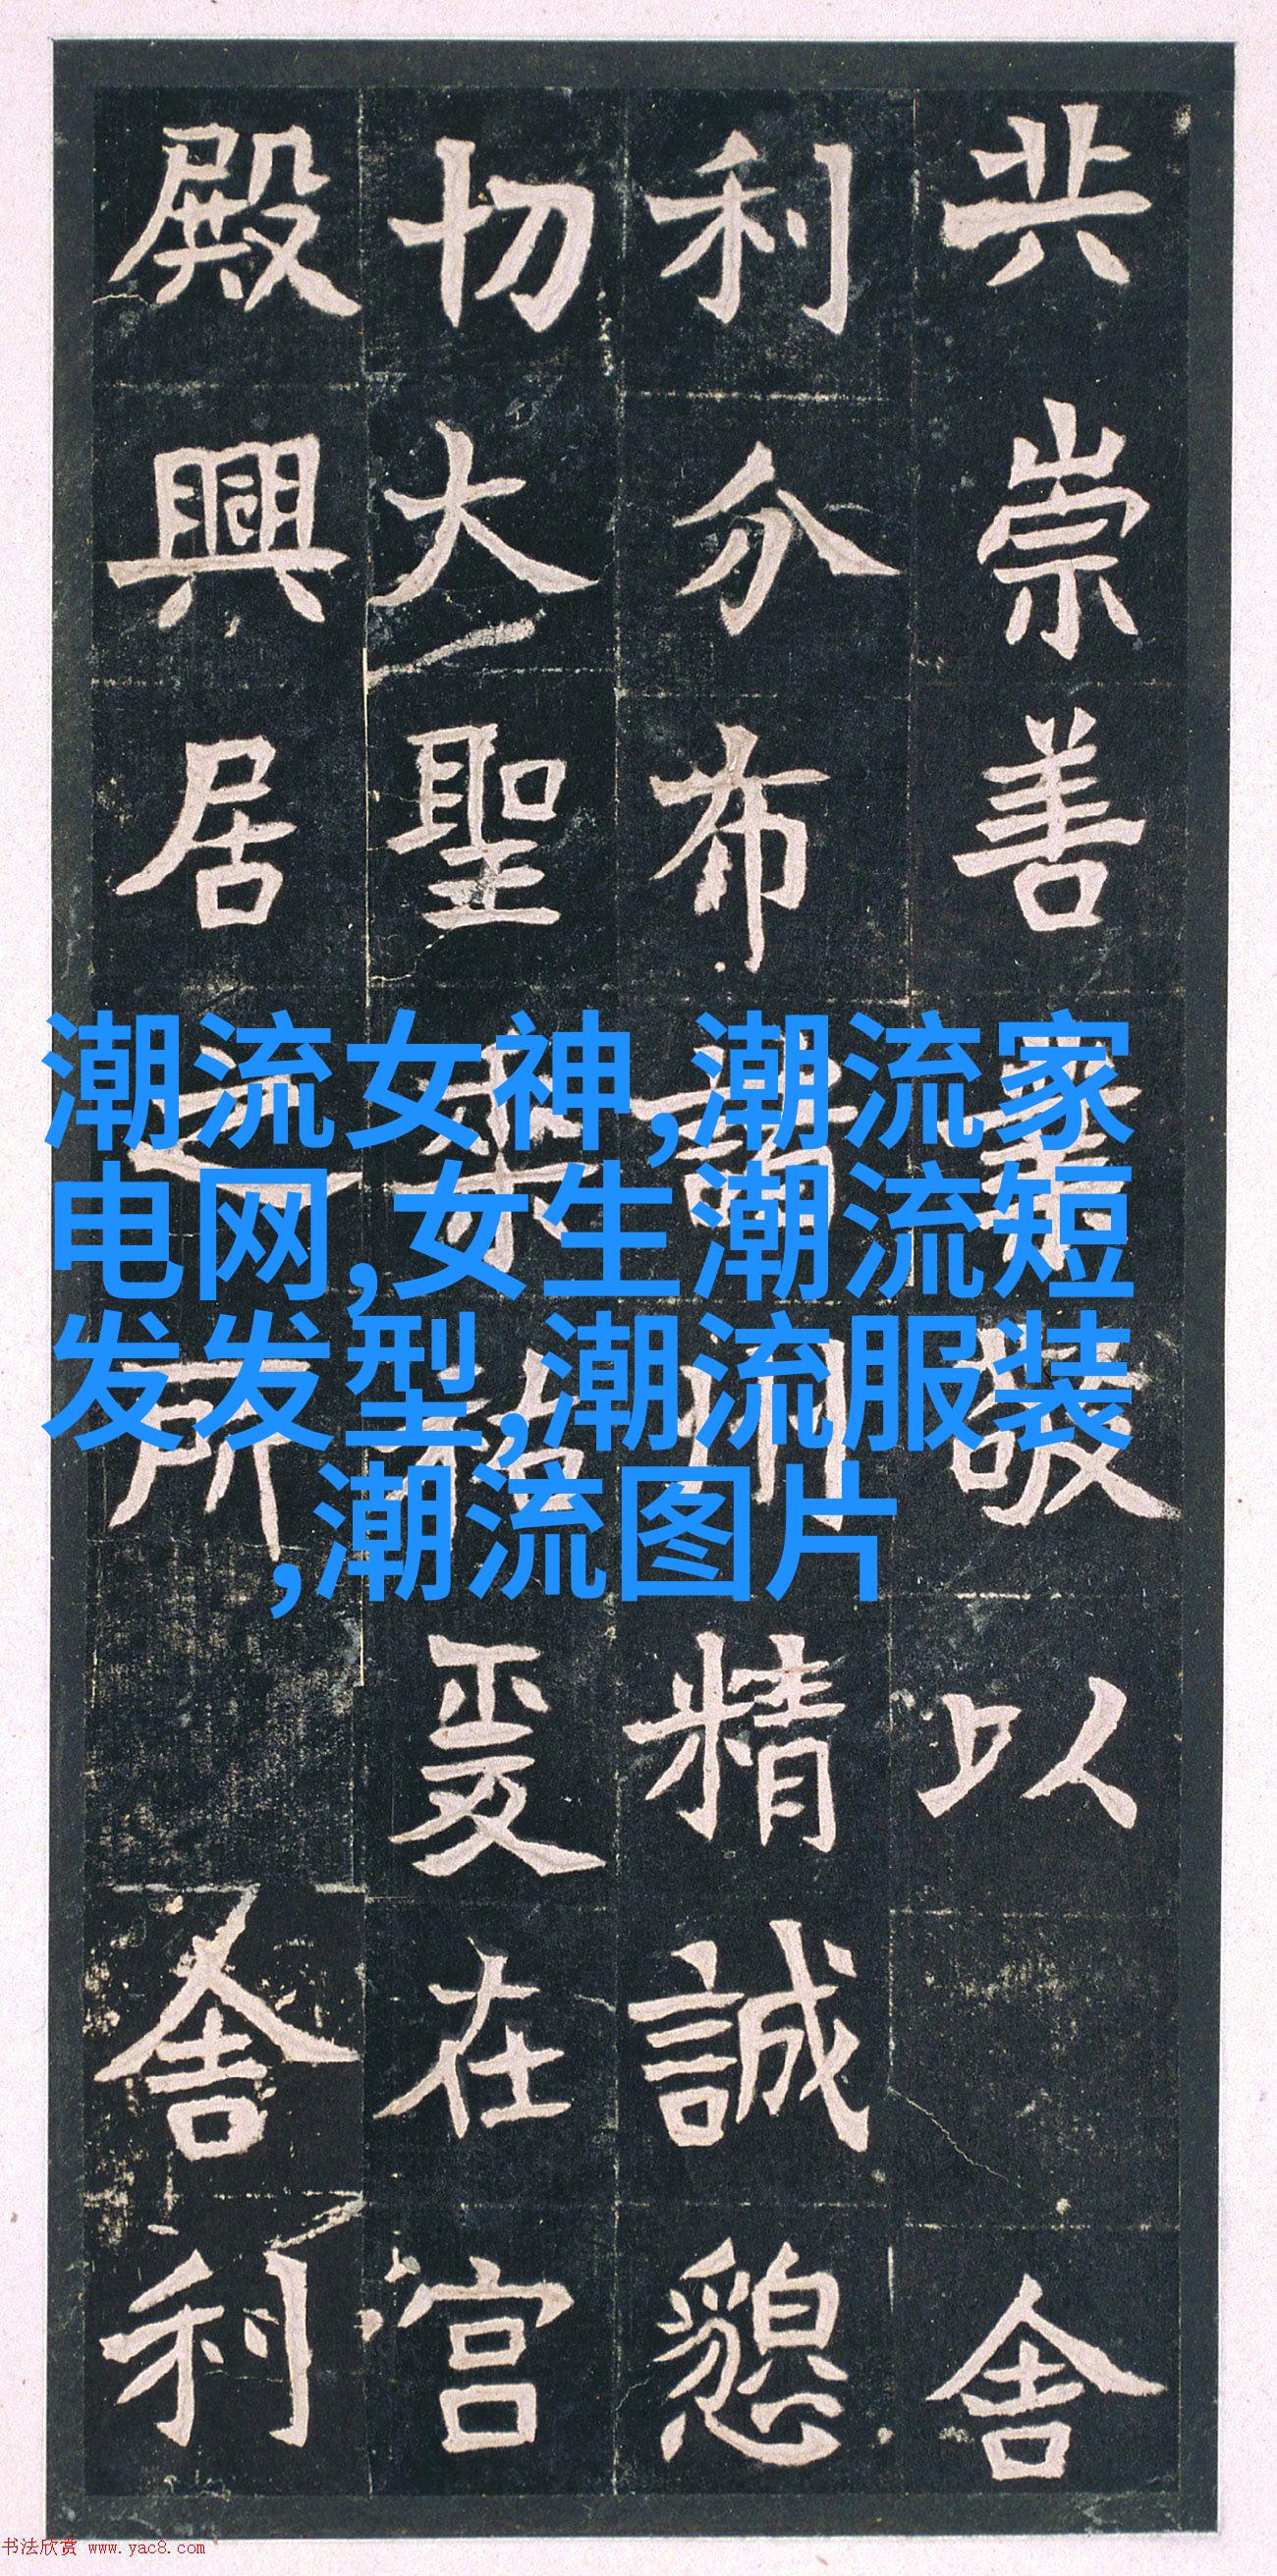 共崇善業敬以 舍
利分布諸州精誠懇
切大聖垂慈爰在宫
殿興居之所 舍利
潮流女神,潮流家
电网,女生潮流短
发发型,潮流服装
,潮流图片
书法欣赏 www.yac8.com